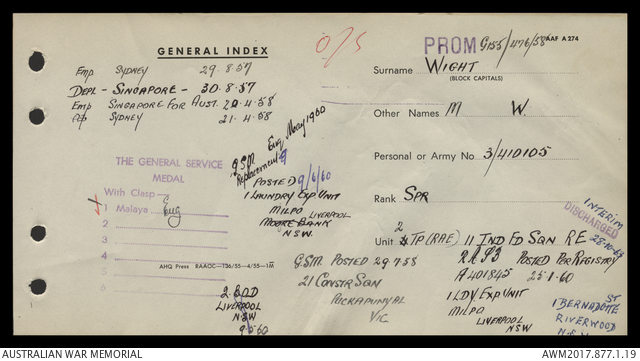 GENERAL INDEX
O/S
PROM G155/476/58 AAF A274
Emp SYDNEY 29.8.57
DEPL - SINGAPORE - 30.8.57
Emp SINGAPORE FOR AUST. 20.4.58
SYDNEY 21.4.58
Surname WIGHT
(BLOCK CAPITALS)
Other Names M W.
Personal or Army No. 3/410105
Rank SPR
Unit 2 TP (RAE) 11 IND FD SQN RE
THE GENERAL SERVICE
MEDAL
With Clasp
1 Malaya Eng
2
3
4
5
6
AHQ Press RAAOC—T36/55—4/55—1M
G.S.M. Eng May 1960
Replacement
POSTED 9/6/60
1 LAUNDRY EXP UNIT
MILPO LIVERPOOL
MOORE BANK
N.S.W.
2 BOD
LIVERPOOL
NSW
9.5.60
G.S.M. POSTED 29.7.58
21 CONSTR SQN
PUCKAPUNYAL
VIC
POSTED PER REGISTRY
A401845 25.1.60
1 LDY EXP UNIT
MILPO
LIVERPOOL
NSW
INTERIM
DISCHARGED
1 BERNADOTTE ST
RIVERWOOD
N.S.W
AUSTRALIAN WAR MEMORIAL
AWM2017.877.1.19